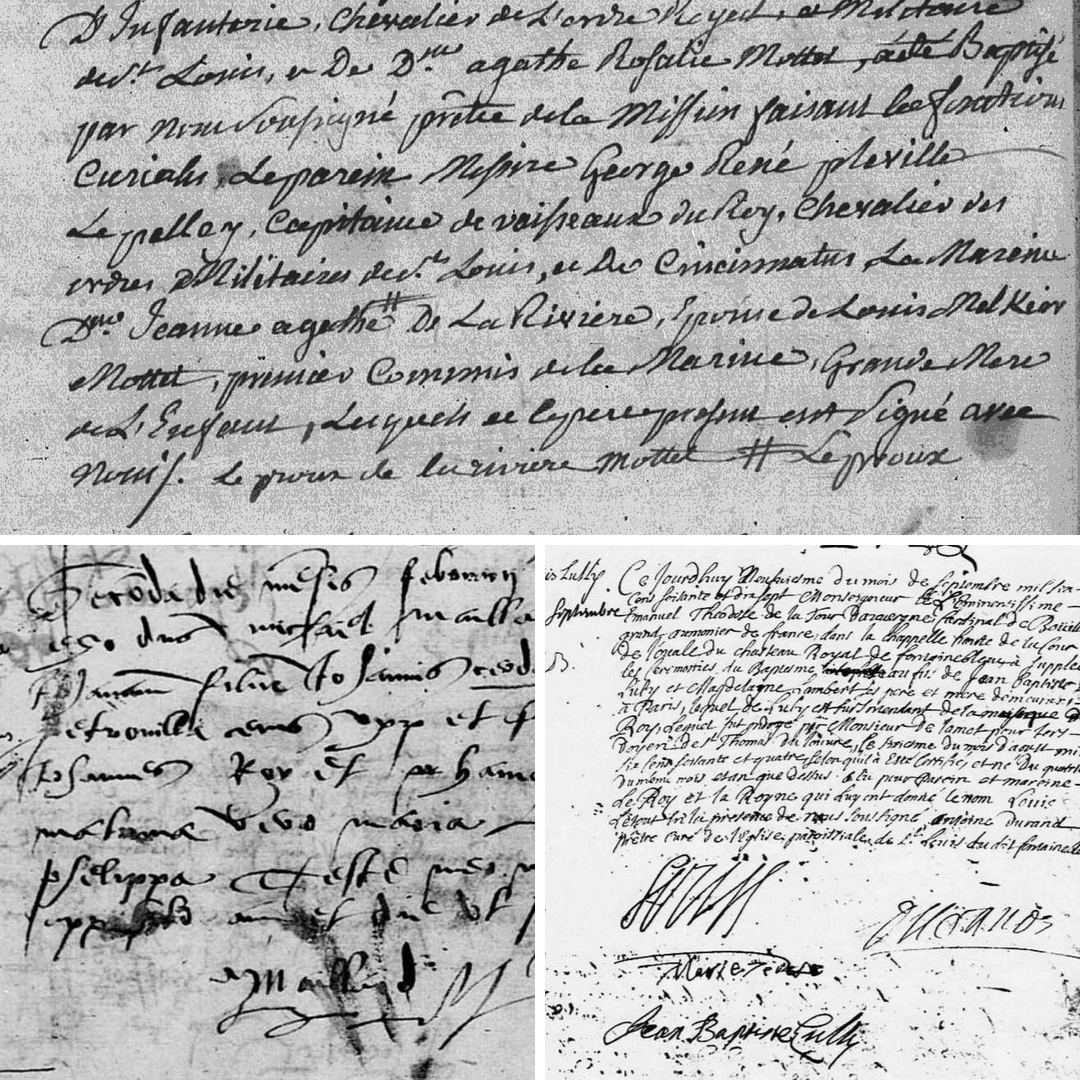 D'Infanterie, Chevalier de L'ordre Royal, et Militaire
de St Louis, et De Dme agathe Rosalie Mottet, a été Baptisé
par nous soussigné prêtre de la Mission faisant les fonctions
Curiales, Le parein Messire George René pleville
Le pelley, Capitaine de vaisseaux du Roy, Chevalier des
ordres Militaires de St Louis, et De Cincinnatus, La Mareine
Dme Jeanne agathe # De La Riviere, Epouse de Louis Melkior
Mottet, premier Commis de la Marine, Grande Mere
de L'Enfant, Lesquels et le pere present ont Signé avec
nous. Le proux de la riviere mottet # Le proux
Secoda die mesis febvrarij
ego dnus michael mailla
Johanam filia Johannis
petronilla eius uxor et f
Johannes Roy et
matrina vero maria
pselippa Teste meo
an et die ut
Maillard
is Lully
Septembre
B.
Ce Jourdhuy Neufviesme du mois de Septembre mil six
Cens soixante et dix sept Monseigneur L'Eminentissime
Emanuel Theodose de la Tour Dauvergne Cardinal de Bouill
grand aumonier de france, dans la chappelle haute de la Cour
De l'ovale du chasteau Royal de fontainebleau a supplée
les ceremonies du Baptesme au fils de Jean Baptiste
Lully et Magdelayne Lambert ses pere et mere demeurant
a Paris, lequel de Lully est surintendant de la musique d
Roy, lequel fut ondoyé par Monsieur de lamet pour lors
Doyen de St Thomas du louvre, le sixiesme du mois d'aoust mi
six cens soixante et quatre selon qu'il a esté Certifié, et né Du quatri
du mesme mois et an que dessus. a Eu pour Parein et mareine
Le Roy et la Royne qui luy ont donné le nom Louis
Le tout fait en presence de nous soussigné antoine durand
Prêtre curé de l'Eglise paroissiale de St Louis du dit fontaineb
Louis
Marie Terese
Jean Baptiste Lully